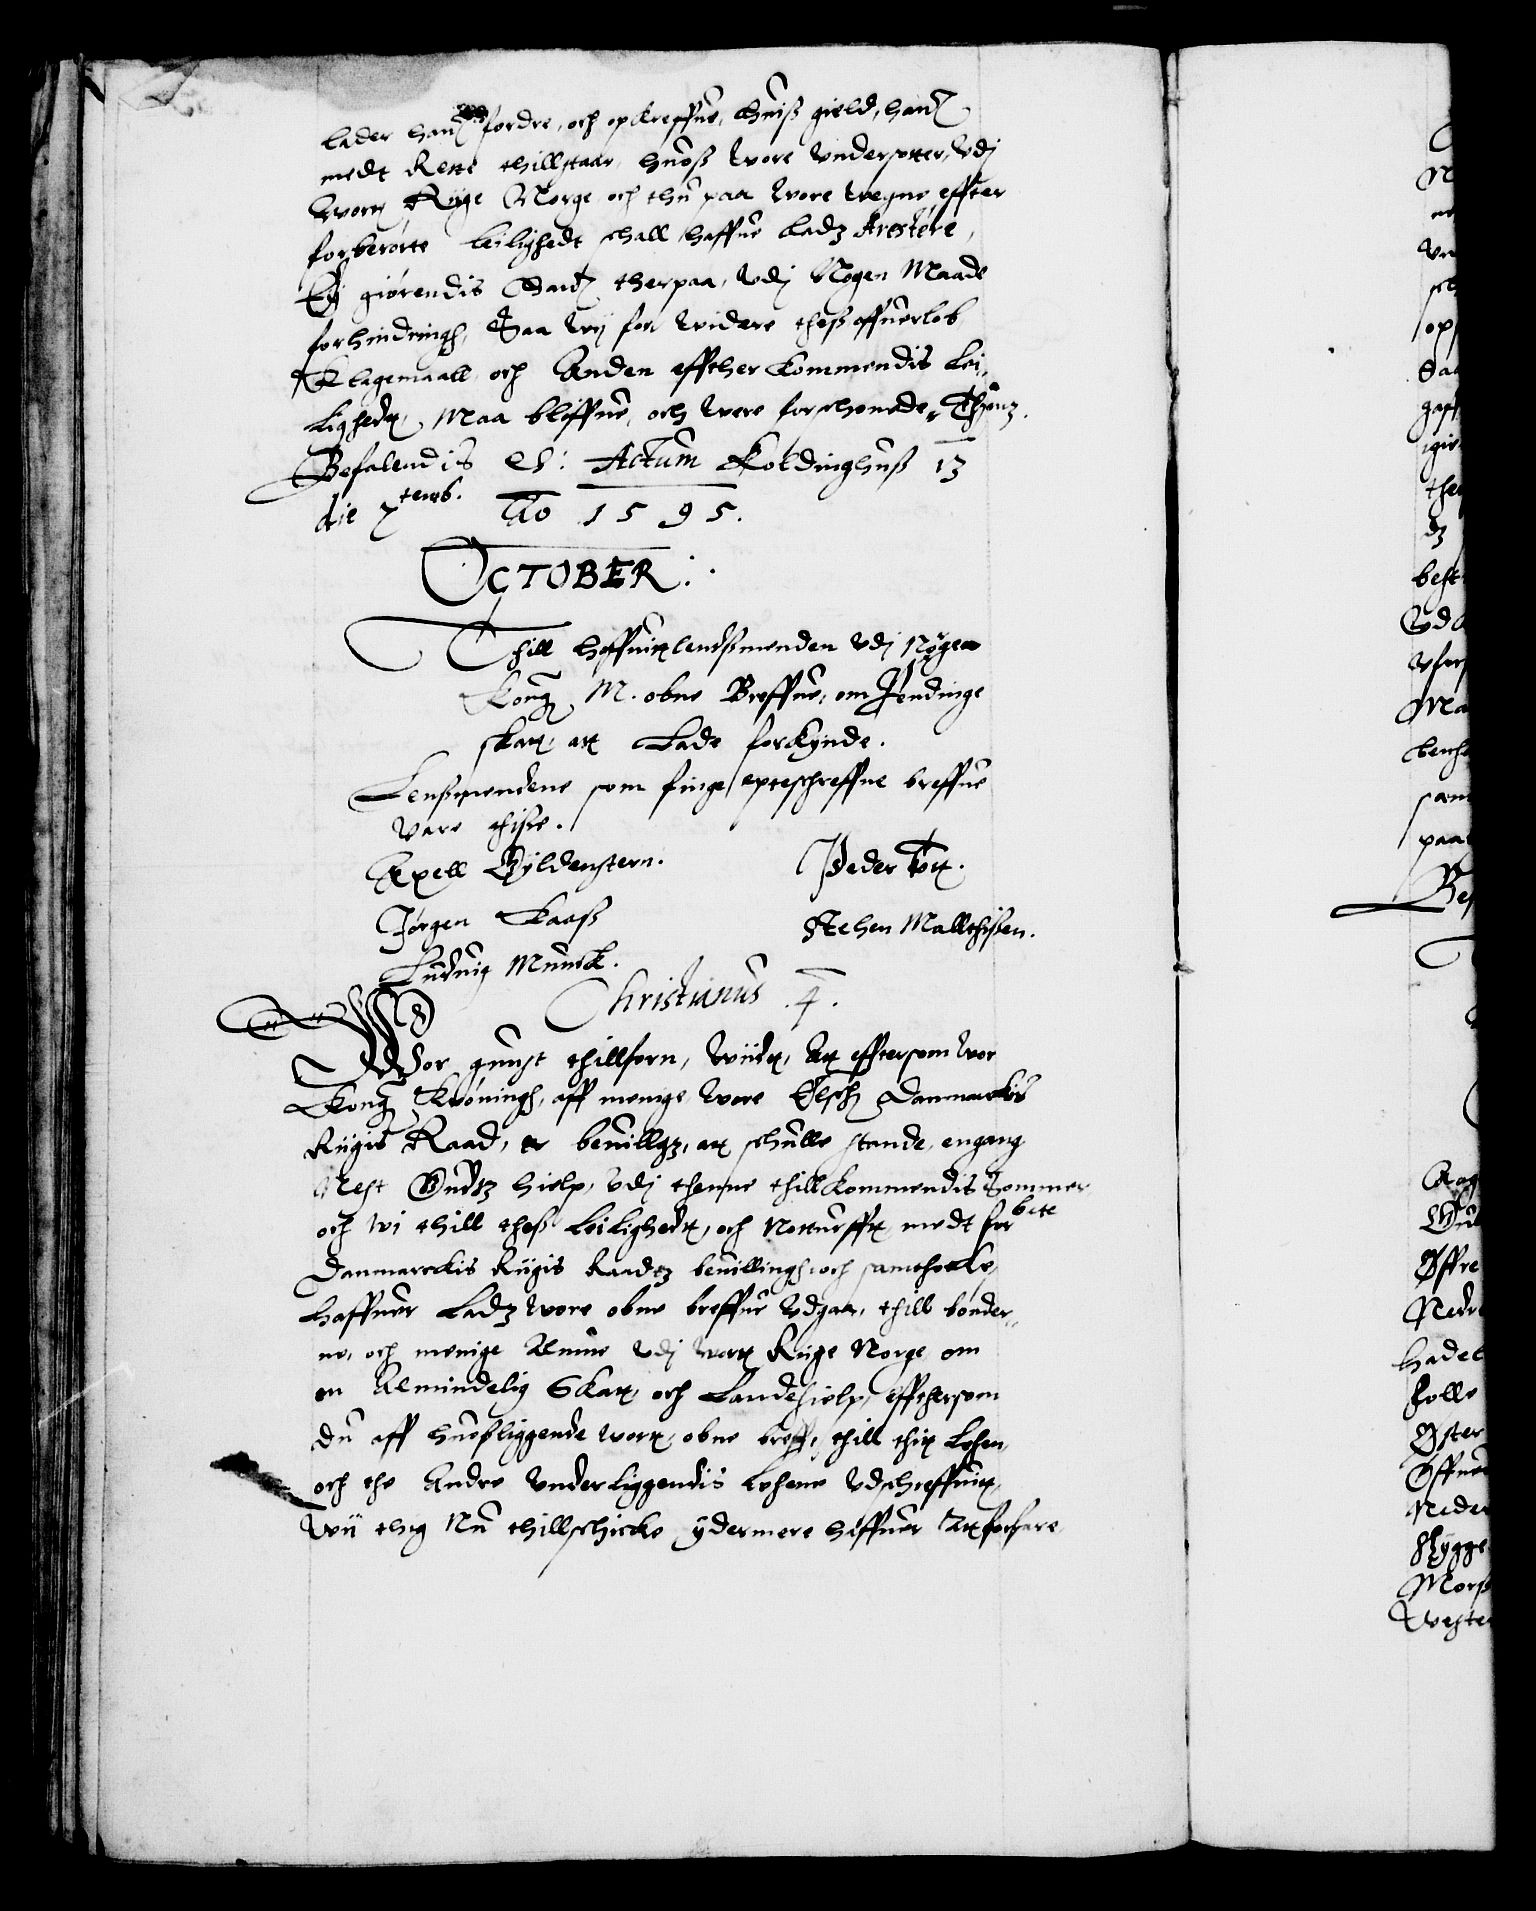 lader hanē fordre, och opkreffue, huiß gield, hanē
medt Rette thillstaar, hnoß wore vndersotter, vdj
wort Rÿge Norge och thu paa wore wegne effter
forberörte leilighedt schall haffue ladz Arestere,
Eÿ giörendis Hanē therpaa, vdj Nogen Maade
forhindringh, Saa wij for widere theß offuerlob
Klagemaall och Anden effther kommendis Lei,
ligheds, Maa bliffue, och were forschonede, Thenz.
Befalendis etc: Actum Koldinghuß 13
die 7temb. Ao 1595.
OCTOBER:.
Thill hoffuitzlendßmenden vdj Nogen
Kong M. obne Breffue, om Pendinge
skatt, att Lade forkÿnde.
Lenßmendene som finge epteschreffne breffue
vare thisse.
Axell Gÿldenstern. Peder
Jörgen Kaaß Stehen Mallthißen.
Luduig Munck.
Christianus .4.
Wor gunst thillforn, wiidt, Att efftersom wor
Kong Kröningh, aff menige wore Elsch Danmarckis
Rigis Raad, er beuillgz, att schulle stande, engang
Nest Gudtz hielp, vdj thenne thillkommendis Sommer
och wi thill theß Leilighedt, och Notturfft medt for be:te
Danmarckis Rigis Raadtz beuillingh och samthocke,
haffuer Ladz wore obne breffue vdgaa, thill bönder,,
ne, och menige Almue vdj wort Rige Norge om
en Almindelig Skatt, och Landehielp, effthersom
du aff hnoßliggende wort, obne breff, thill thit Lehen,
och the Andre vnderliggendis Lehene vdschreffuit,
wij thig Nu thillschicke ÿdermere haffuer att forfare